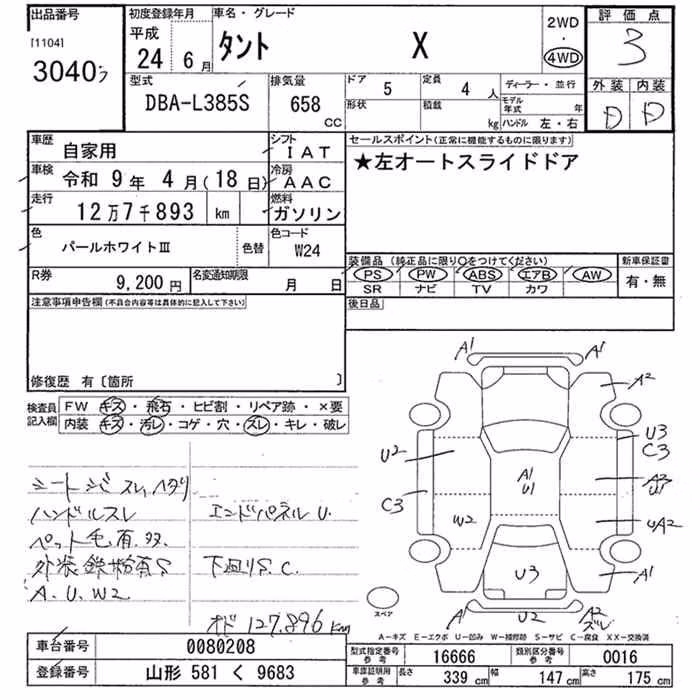 出品番号
[1104]
3040
初度登録年月
平成
24 年 6 月
車名・グレード
タント X
2WD
・
4WD
評価点
3
外装 内装
D D
型式
DBA-L385S
排気量
658
CC
ドア 5
形状
定員 4 人
積載 kg
ディーラー・並行
モデル年式 年
ハンドル 左・右
車歴 自家用
シフト IAT
車検 令和 9 年 4 月(18 日)
冷房 AAC
走行 12 万 7 千 893 km
燃料 ガソリン
色 パールホワイトⅢ 色替
色コード W24
R券 9,200 円
名変通知期限 月 日
セールスポイント(正常に機能するものに限ります)
★左オートスライドドア
装備品 (純正品に限り○をつけてください)
PS PW ABS エアB AW
SR ナビ TV カワ
新車保証書
有・無
後日品
注意事項申告欄(不具合内容等は具体的に記入して下さい)
修復歴 有〔箇所 〕
検査員記入欄
FW キズ・飛石・ヒビ割・リペア跡・×要
内装 キズ・汚レ・コゲ・穴・ズレ・キレ・破レ
シートシミ スレ,ヘタリ
ハンドルスレ
ペット毛有 多.
外装 鉄粉有S
A.U.W2
エンドパネル U.
下廻りS.C.
オド 127.896 km
A1 A1
A2
U3
C3
U2
A1
U1
A2
U1
C3
W2
UA2
U3
A1
A1 U2 A2
ズレ
スペア
A-キズ E-エクボ U-凹み W-補修跡 S-サビ C-腐食 XX-交換済
車台番号 0080208
登録番号 山形 581 く 9683
型式指定番号 参考 16666
類別区分番号 参考 0016
車庫証明用 参考 長さ 339 cm 幅 147 cm 高さ 175 cm